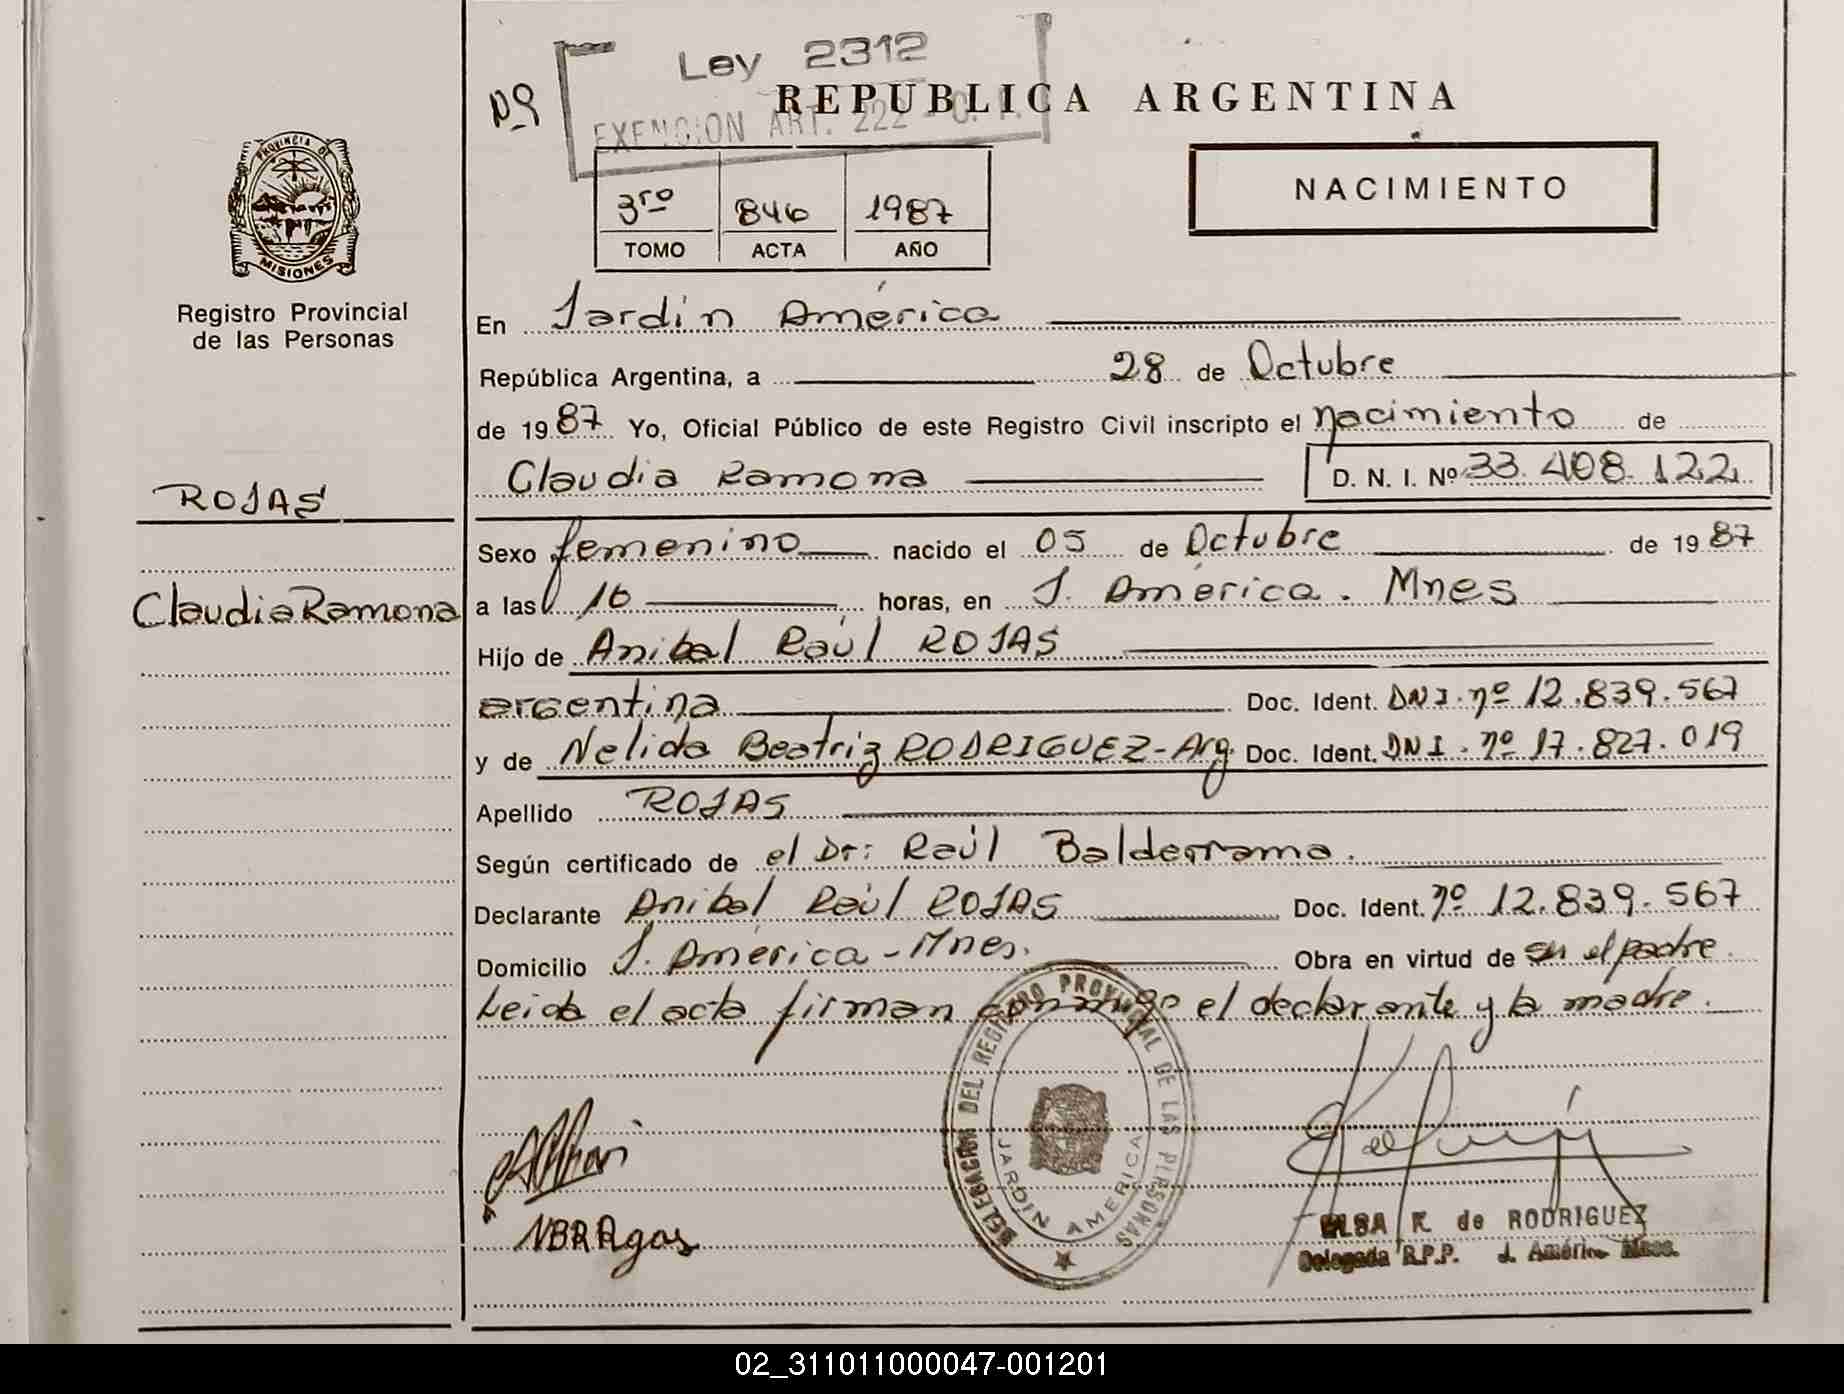 Nº
Ley 2312
EXENCION ART. 222 - C. F.
REPUBLICA ARGENTINA
NACIMIENTO
3ro 846 1987
TOMO ACTA AÑO
PROVINCIA DE
MISIONES
Registro Provincial
de las Personas
ROJAS
Claudia Ramona
En Jardín América
República Argentina, a 28 de Octubre
de 1987 Yo, Oficial Público de este Registro Civil inscripto el nacimiento de
Claudia Ramona D. N. I. Nº 33.408.122
Sexo femenino nacido el 05 de Octubre de 1987
a las 16 horas, en J. América. Mnes
Hijo de Anibal Raúl ROJAS
argentina Doc. Ident. DNI. nº 12.839.567
y de Nelida Beatriz RODRIGUEZ - Arg. Doc. Ident. DNI. nº 17.827.019
Apellido ROJAS
Según certificado de el Dr: Raúl Balderrama.
Declarante Anibal Raúl ROJAS Doc. Ident. nº 12.839.567
Domicilio J. América - Mnes. Obra en virtud de ser el padre.
Leida el acta firman conmigo el declarante y la madre.
DELEGACION DEL REGISTRO PROVINCIAL DE LAS PERSONAS
JARDIN AMERICA
ELSA K. de RODRIGUEZ
Delegada R.P.P. J. América Mnes.
02_311011000047-001201